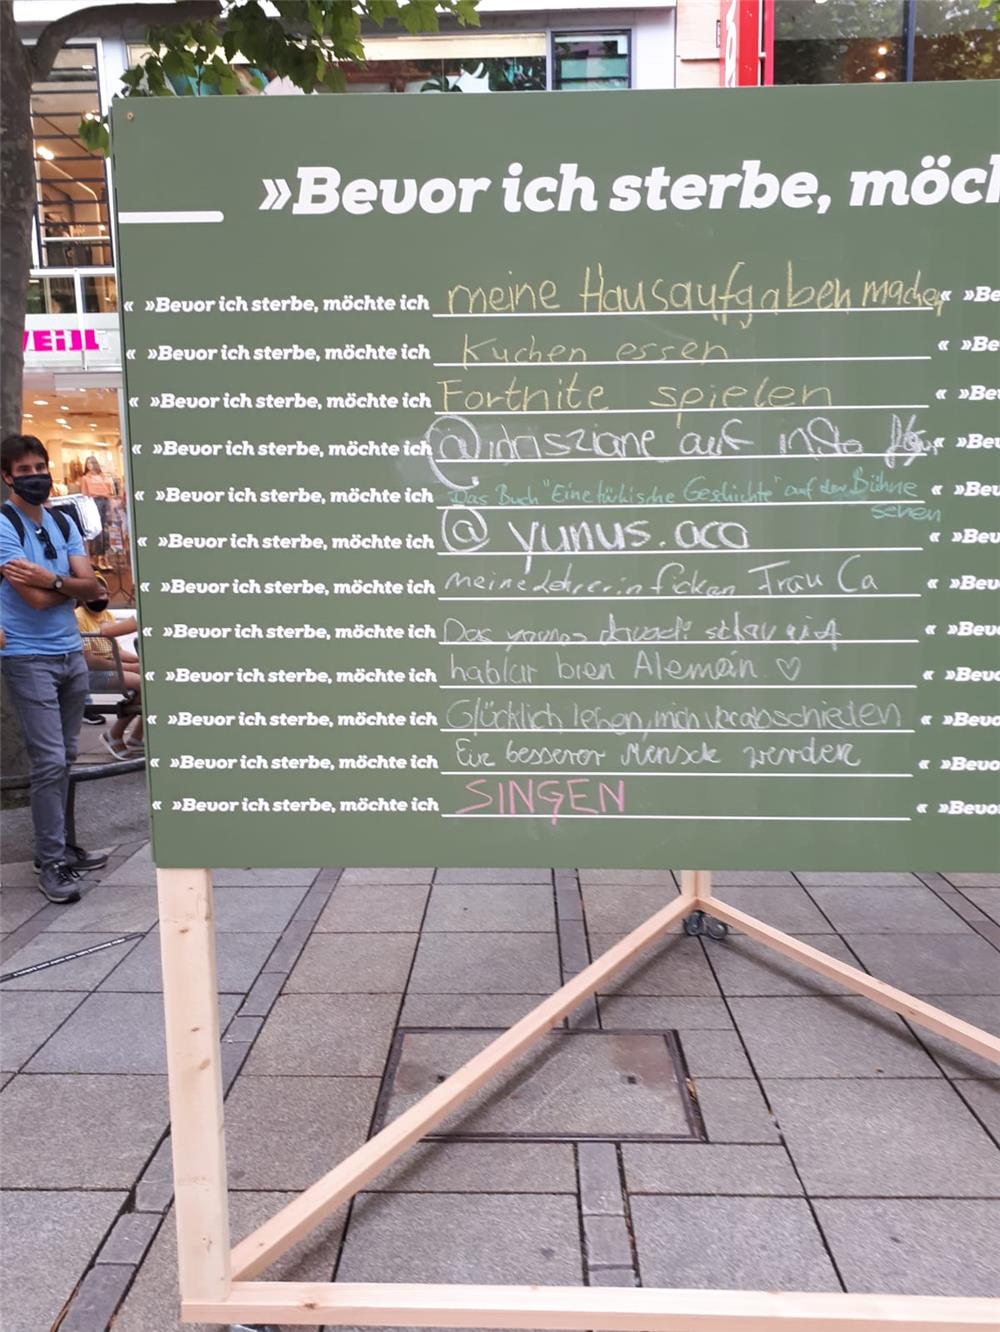 »Bevor ich sterbe, möch
« »Bevor ich sterbe, möchte ich meine Hausaufgaben machen « »Be
« »Bevor ich sterbe, möchte ich Kuchen essen « »Be
« »Bevor ich sterbe, möchte ich Fortnite spielen « »Bev
« »Bevor ich sterbe, möchte ich auf insta « »Bev
« »Bevor ich sterbe, möchte ich Das Buch "Eine türkische Geschichte" auf der Bühne sehen « »Bev
« »Bevor ich sterbe, möchte ich @yunus.aca « »Bev
« »Bevor ich sterbe, möchte ich meine Lehrerin ficken Frau Ca « »Bev
« »Bevor ich sterbe, möchte ich Das « »Bev
« »Bevor ich sterbe, möchte ich hablar bien Alemán ♡ « »Bevo
« »Bevor ich sterbe, möchte ich Glücklich leben, mich verabschieden « »Bevo
« »Bevor ich sterbe, möchte ich Ein besserer Mensch werden « »Bevo
« »Bevor ich sterbe, möchte ich SINGEN « »Bevo